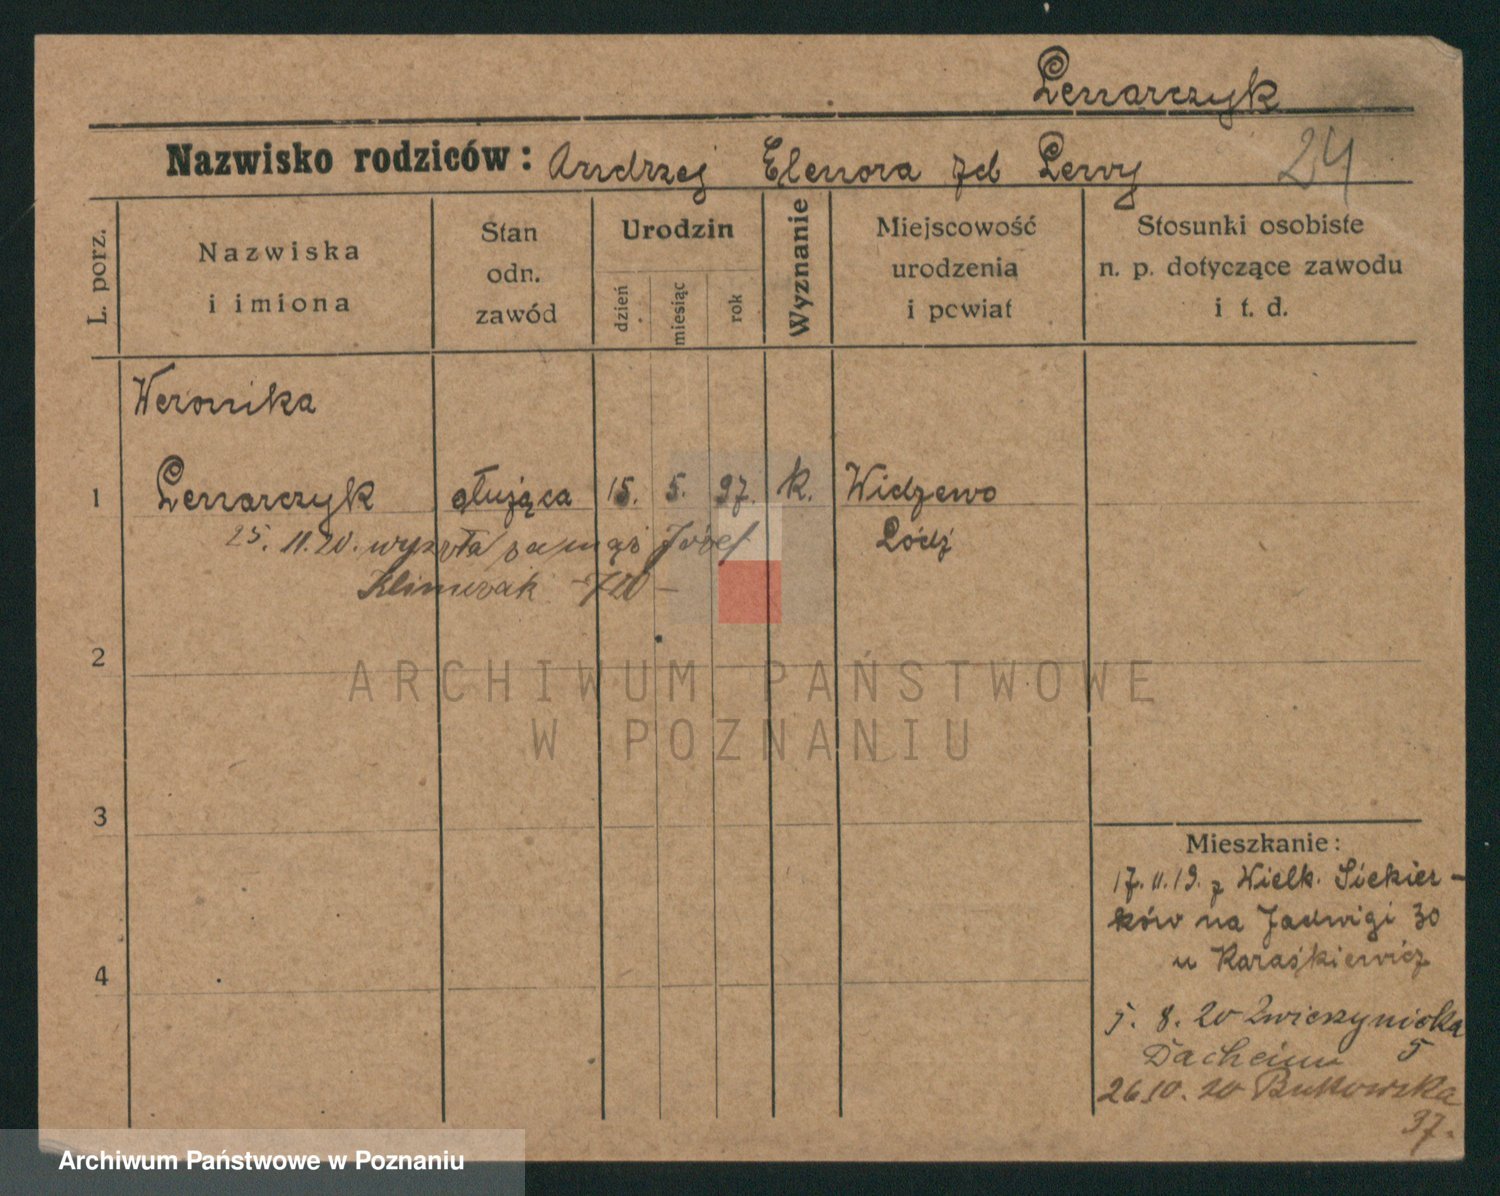 Lenarczyk
Nazwisko rodziców: Andrzej Elenora zd Lewy 24
L. porz.
Nazwiska
i imiona
Stan
odn.
zawód
Urodzin
dzień
miesiąc
rok
Wyznanie
Miejscowość
urodzenia
i powiat
Stosunki osobiste
n. p. dotyczące zawodu
i t. d.
Weronika
1 Lenarczyk służąca 15. 5. 97. k. Widzewo
Łódź
25. 11. 20. wyszła zamąż Józef
Klimczak
2
ARCHIWUM PAŃSTWOWE
W POZNANIU
3
Mieszkanie:
17. 11. 19. z Wielk. Siekier-
ków na Jadwigi 30
u Karaśkiewicz
4
5. 8. 20 Zwierzyniecka
5
26.10. 20 Bukowska
37.
Archiwum Państwowe w Poznaniu